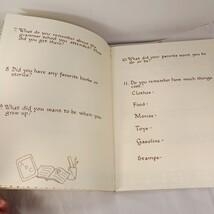 7. What do you remember about the
grammar school you attended? How
did you get there?
8. Did you have any favorite books or
stories?
9. What did you want to be when you
grew up?
10. What did your parents want you to
do or be?
11. Do you remember how much things
cost?
Clothes -
Food -
Movies -
Toys -
Gasoline -
Stamps -